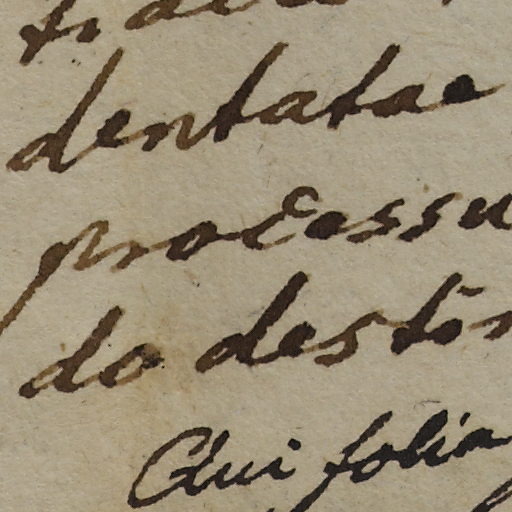 dentatae
processu
do destin
Qui folia